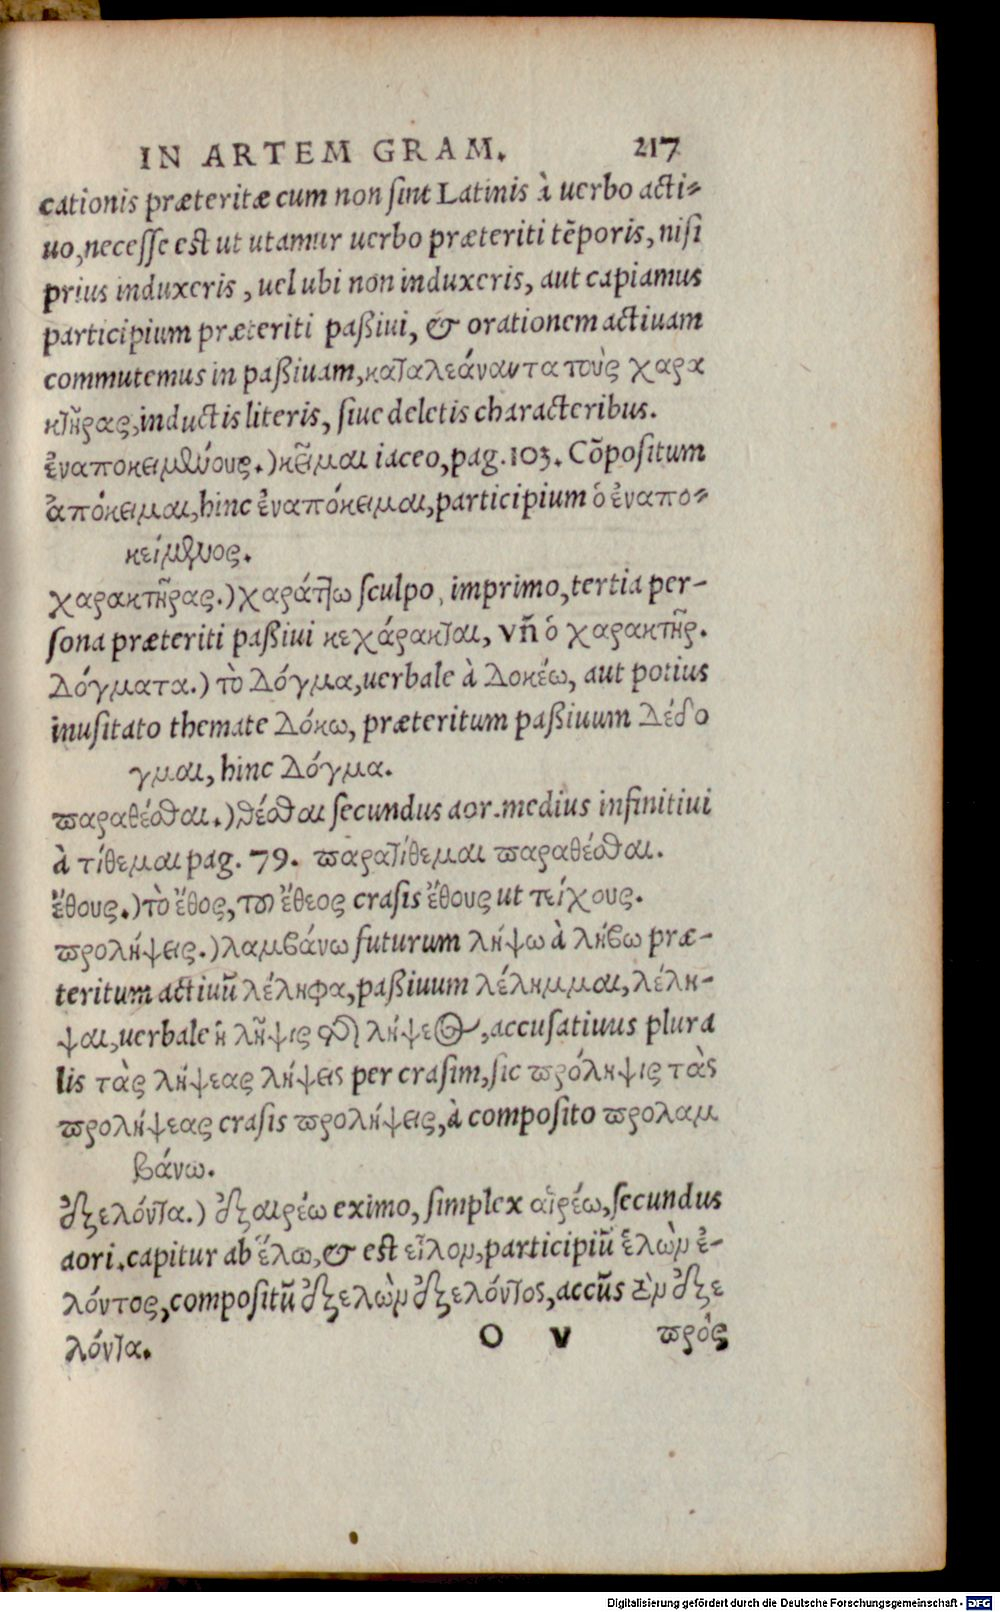 IN ARTEM GRAM. 217
cationis præteritæ cum non sint Latinis à uerbo acti-
uo, necesse est ut utamur uerbo præteriti tẽporis, nisi
prius induxeris, uel ubi non induxeris, aut capiamus
participium præteriti paßiui, & orationem actiuam
commutemus in paßiuam, καταλεάναντα τοὺς χαρα
κτῆρας, inductis literis, siue deletis characteribus.
ἐναποκειμένους.) κεῖμαι iaceo, pag. 103. Cõpositum
ἀπόκειμαι, hinc ἐναπόκειμαι, participium ὁ ἐναπο-
κείμενος.
χαρακτῆρας.) χαράττω sculpo, imprimo, tertia per-
sona præteriti paßiui κεχάρακται, vñ ὁ χαρακτῆρ.
Δόγματα.) τὸ Δόγμα, uerbale à Δοκέω, aut potius
inusitato themate Δόκω, præteritum paßiuum Δέδο
γμαι, hinc Δόγμα.
παραθέσθαι.) θέσθαι secundus aor. medius infinitiui
à τίθεμαι pag. 79. παρατίθεμαι παραθέσθαι.
ἔθους.) τὸ ἔθος, τοῦ ἔθεος crasis ἔθους ut τείχους.
προλήψεις.) λαμβάνω futurum λήψω à λήβω præ-
teritum actiuũ λέληφα, paßiuum λέλημμαι, λέλη-
ψαι, uerbale ἡ λῆψις τῆς λήψεως, accusatiuus plura
lis τὰς λήψεας λήψεις per crasim, sic πρόληψις τὰς
προλήψεας crasis προλήψεις, à composito προλαμ
βάνω.
ἐξελόντα.) ἐξαιρέω eximo, simplex αἱρέω, secundus
aori. capitur ab ἕλω, & est εἷλον, participiũ ἑλὼν ἑ-
λόντος, compositũ ἐξελὼν ἐξελόντος, accũs τὸν ἐξε
λόντα. O v πρὸς
Digitalisierung gefördert durch die Deutsche Forschungsgemeinschaft - DFG